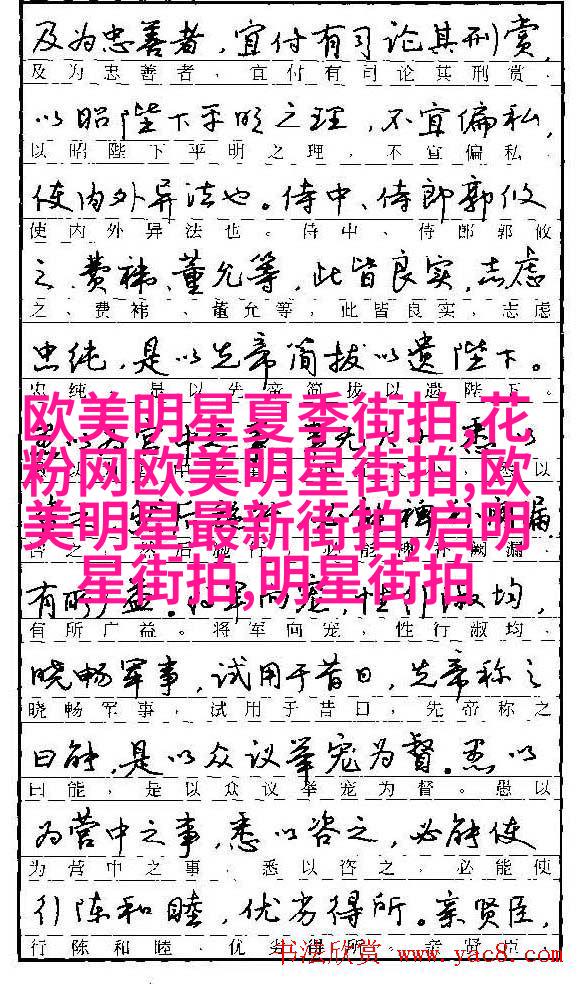 及为忠善者，宜付有司论其刑赏，
及为忠善者，宜付有司论其刑赏，
以昭陛下平明之理，不宜偏私，
以昭陛下平明之理，不宜偏私，
使内外异法也。侍中、侍郎郭攸
使内外异法也。侍中、侍郎郭攸
之、费祎、董允等，此皆良实，志虑
之、费祎、董允等，此皆良实，志虑
忠纯，是以先帝简拔以遗陛下。
忠纯，是以先帝简拔以遗陛下。
欧美明星夏季街拍,花
粉网欧美明星街拍,欧
美明星最新街拍,启明
星街拍,明星街拍
有所广益。将军向宠，性行淑均，
有所广益。将军向宠，性行淑均，
晓畅军事，试用于昔日，先帝称之
晓畅军事，试用于昔日，先帝称之
曰能，是以众议举宠为督。愚以
曰能，是以众议举宠为督。愚以
为营中之事，悉以咨之，必能使
为营中之事，悉以咨之，必能使
行陈和睦，优劣得所。亲贤臣，
行陈和睦，优劣得所。亲贤臣，
书法欣赏 www.yac8.com